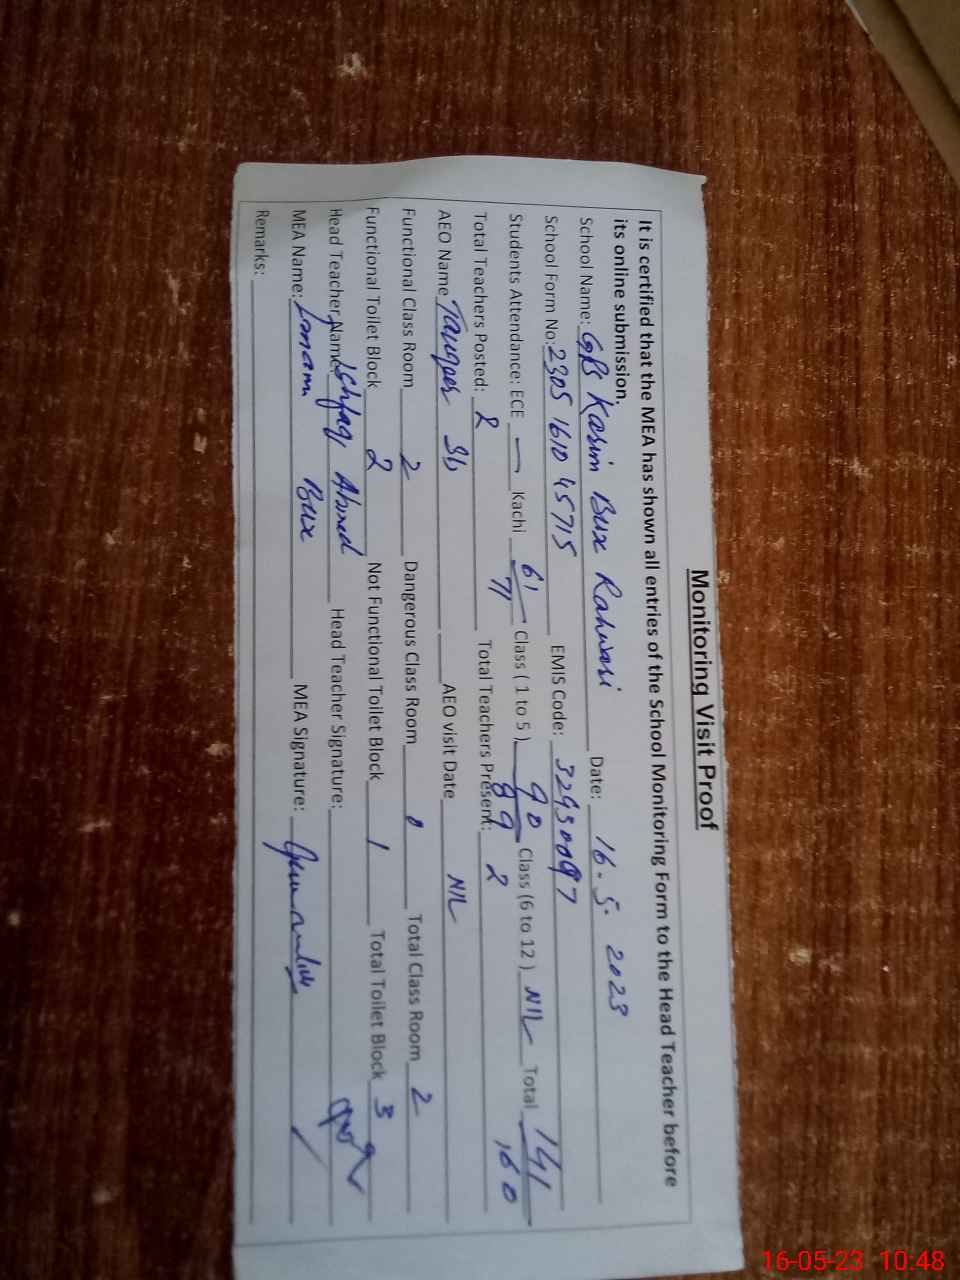 Monitoring Visit Proof
It is certified that the MEA has shown all entries of the School Monitoring Form to the Head Teacher before
its online submission.
School Name: GPS Kasim Bux Rahwasi Date: 16-5-2023
School Form No: 2305 1610 45715 EMIS Code:
Students Attendance: ECE — Kachi 61/71 Class ( 1 to 5 ) 90/89 Class (6 to 12 ) NIL Total 141/160
Total Teachers Posted: 2 Total Teachers Present: 2
AEO Name AEO visit Date NIL
Functional Class Room 2 Dangerous Class Room 0 Total Class Room 2
Functional Toilet Block 2 Not Functional Toilet Block 1 Total Toilet Block 3
Head Teacher Name Ishfaq Ahmed Head Teacher Signature:
MEA Name: Imam Bux MEA Signature:
Remarks:
16-05-23 10:48